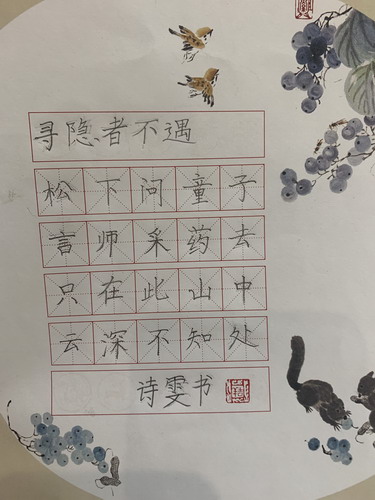 寻隐者不遇
松下问童子
言师采药去
只在此山中
云深不知处
诗雯书